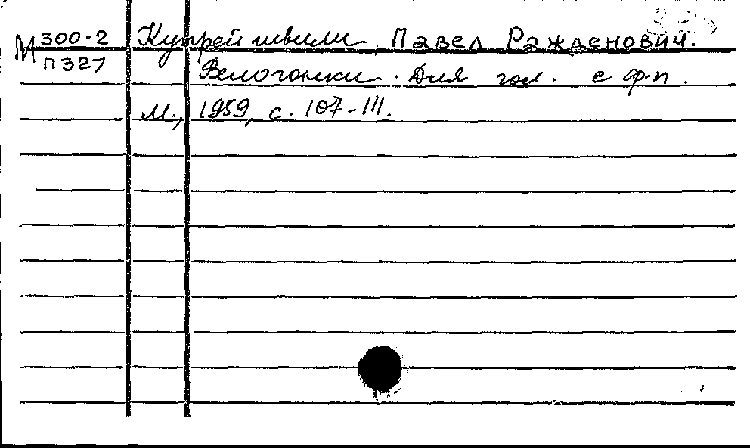 М 300-2 Купрейшвили, Павел Ражденович.
П327 Велогонки. Для гол. с ф-п.
М., 1959, с. 107-111.